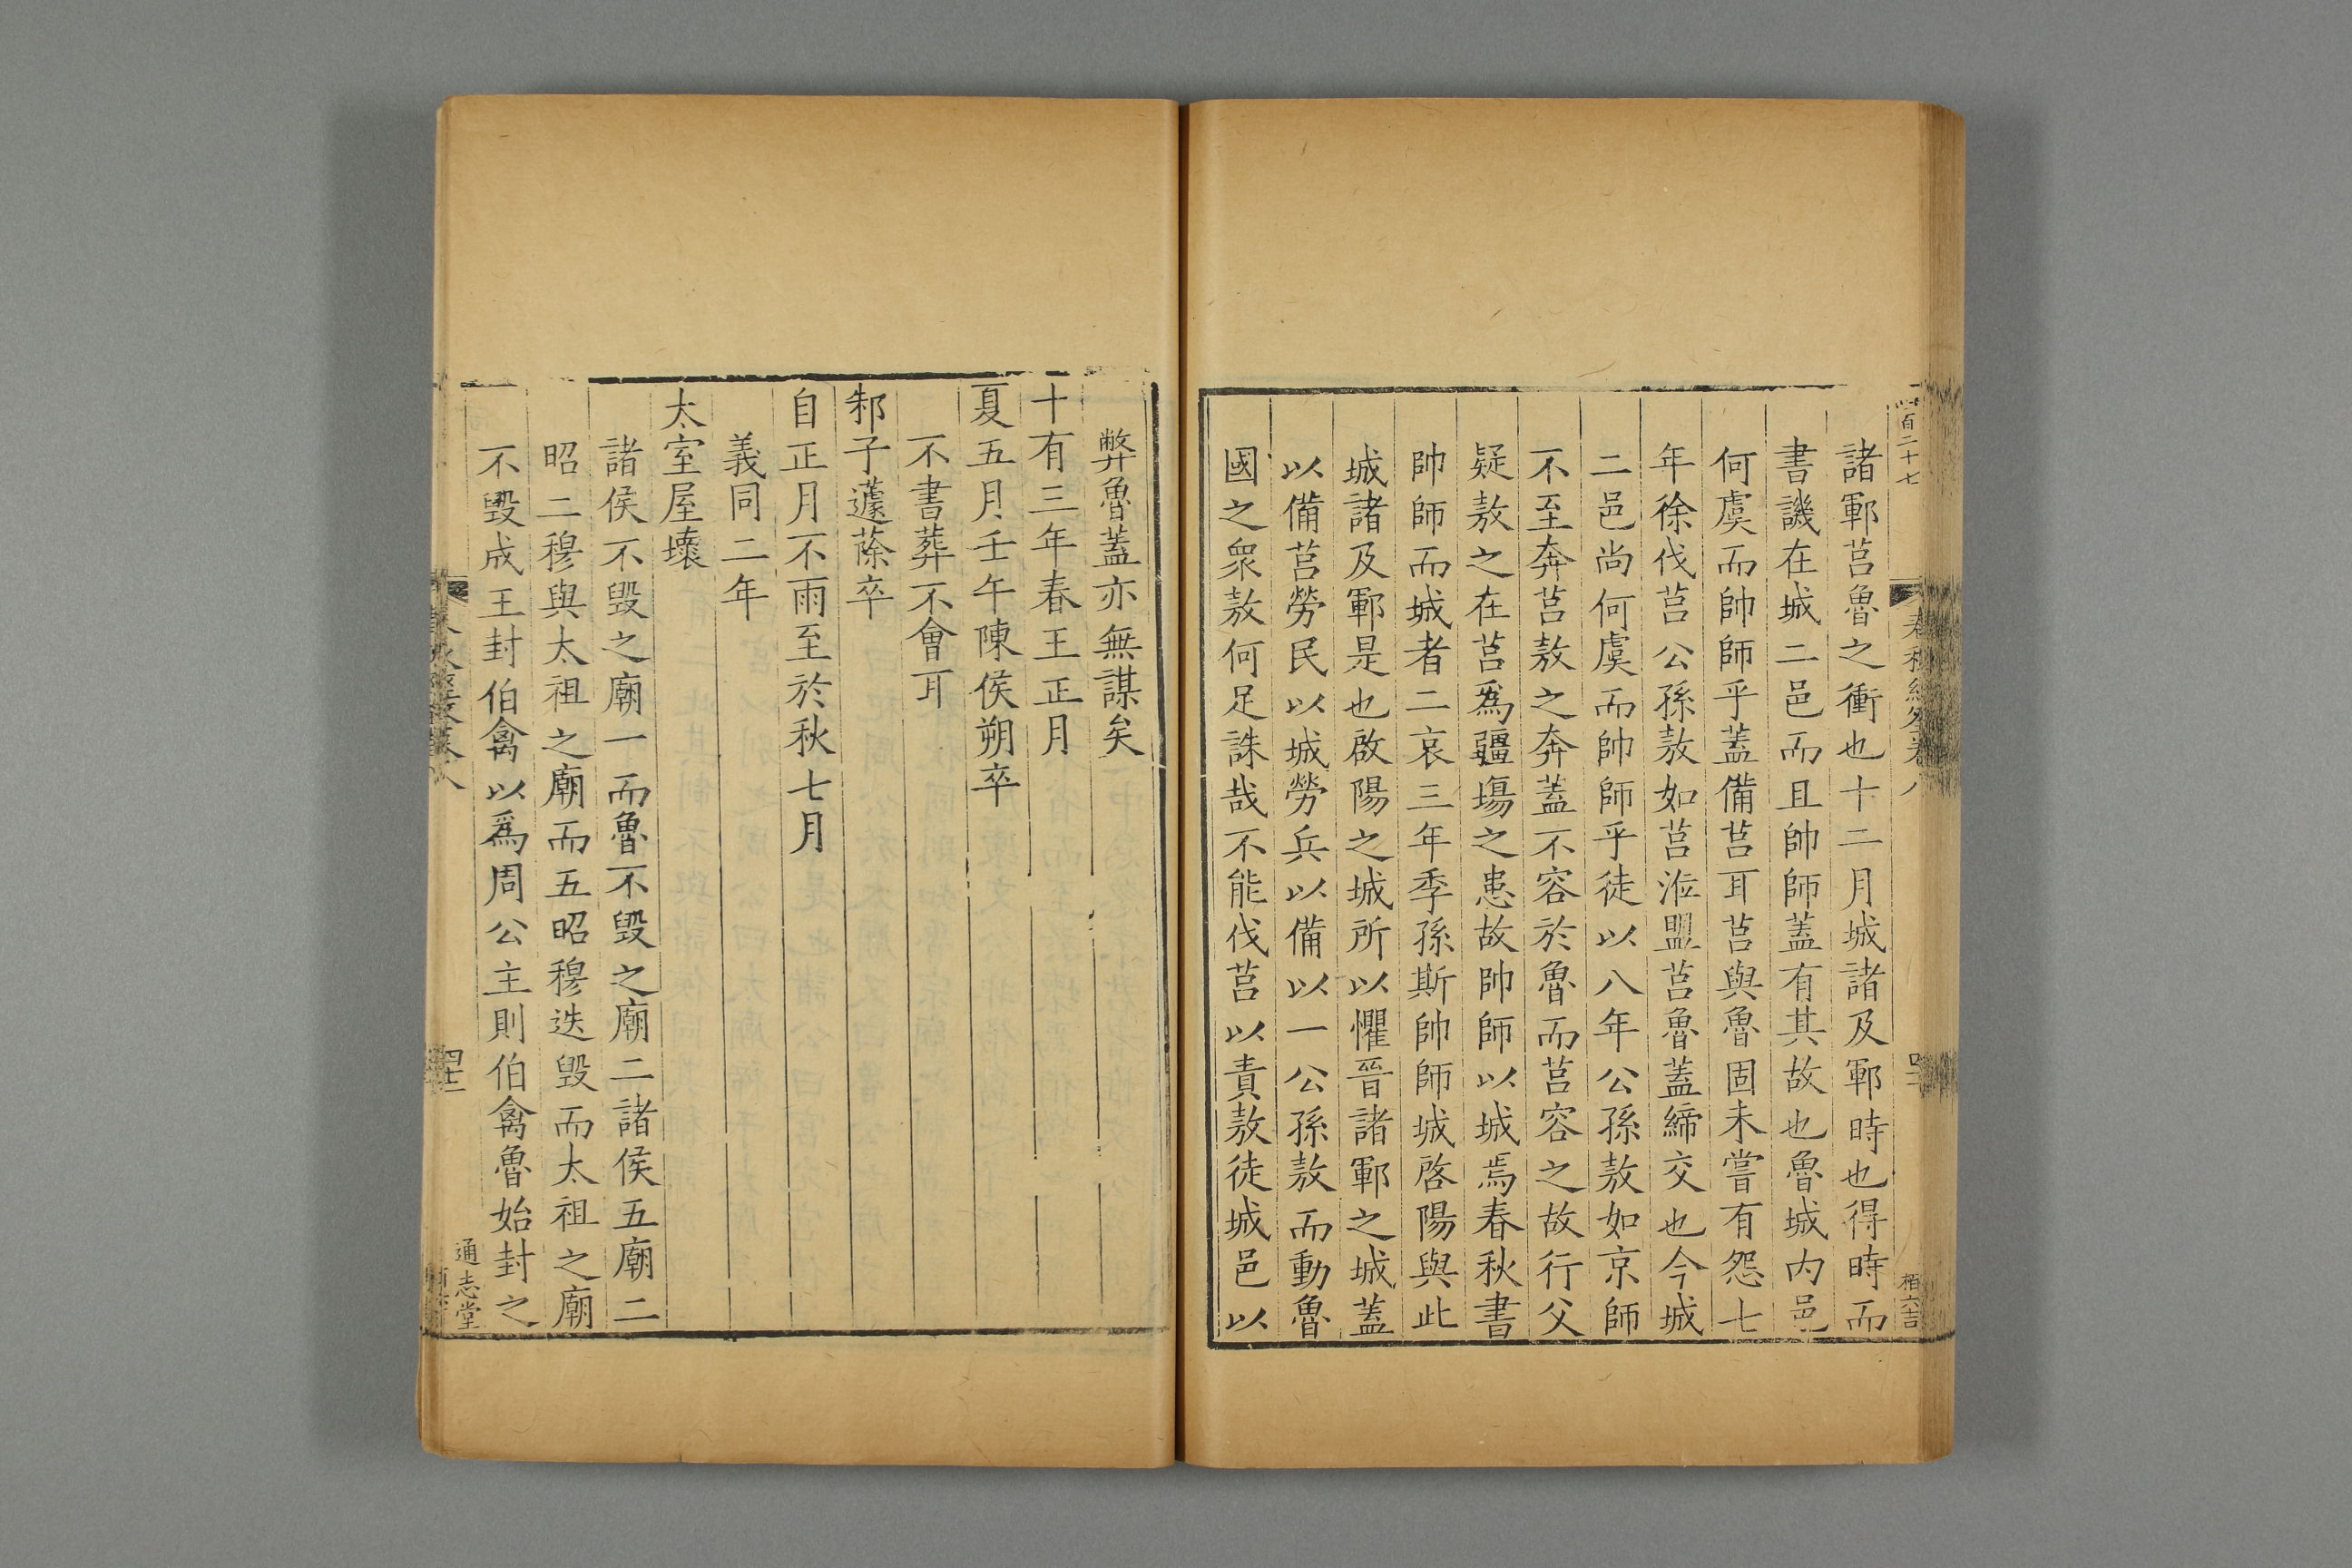 百二十七
諸鄆莒魯之衝也十二月城諸及鄆時也得時而
書譏在城二邑而且帥師蓋有其故也魯城内邑
何虞而帥師乎蓋備莒耳莒與魯固未嘗有怨七
年徐伐莒公孫敖如莒涖盟莒魯蓋締交也今城
二邑尚何虞而帥師乎徒以八年公孫敖如京師
不至奔莒敖之奔蓋不容於魯而莒容之故行父
疑敖之在莒爲疆場之患故帥師以城焉春秋書
帥師而城者二哀三年季孫斯帥師城啓陽與此
城諸及鄆是也啟陽之城所以懼晉諸鄆之城蓋
以備莒勞民以城勞兵以備以一公孫敖而動魯
國之衆敖何足誅哉不能伐莒以責敖徒城邑以
弊魯蓋亦無謀矣
十有三年春王正月
夏五月壬午陳侯朔卒
不書葬不會耳
邾子蘧蒢卒
自正月不雨至於秋七月
義同二年
太室屋壞
諸侯不毀之廟一而魯不毀之廟二諸侯五廟二
昭二穆與太祖之廟而五昭穆迭毀而太祖之廟
不毀成王封伯禽以爲周公主則伯禽魯始封之
通志堂